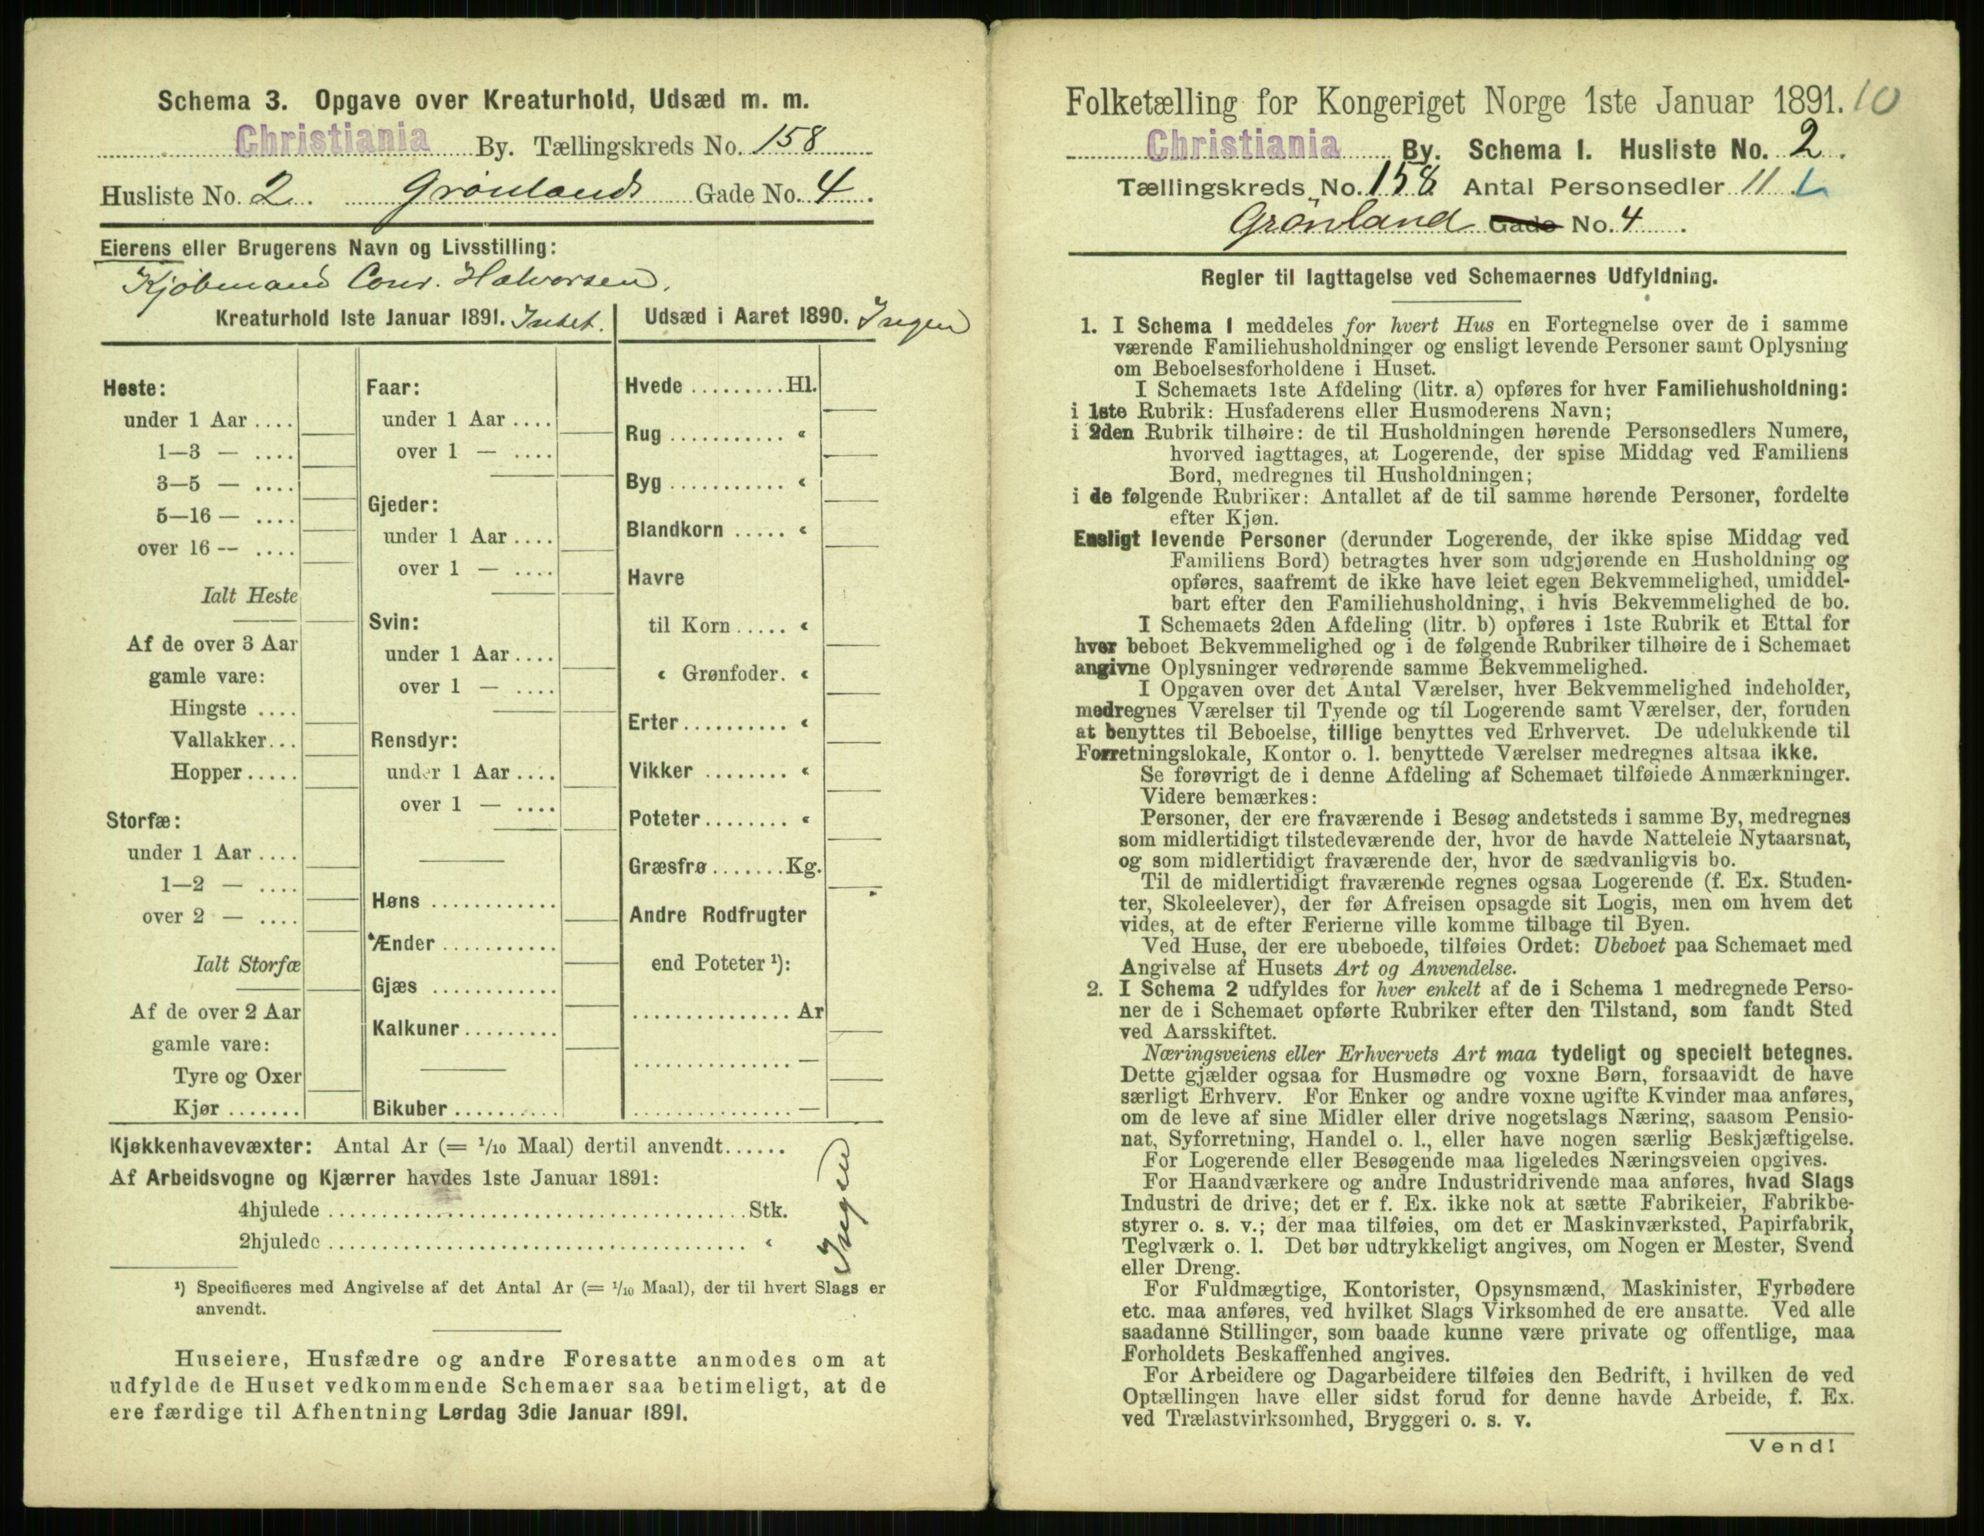 Schema 3. Opgave over Kreaturhold, Udsæd m. m.
Christiania By. Tællingskreds No. 158
Husliste No. 2. Grönlands Gade No. 4.
Eierens eller Brugerens Navn og Livsstilling:
Kjöbmand Conr. Halvorsen.
Kreaturhold 1ste Januar 1891. Intet.
Heste:
under 1 Aar ....
1—3 — ....
3—5 — ....
5—16 — ....
over 16 — ....
Ialt Heste
Af de over 3 Aar
gamle vare:
Hingste ....
Vallakker...
Hopper.....
Storfæ:
under 1 Aar ....
1—2 — ....
over 2 — ....
Ialt Storfæ
Af de over 2 Aar
gamle vare:
Tyre og Oxer
Kjør.......
Faar:
under 1 Aar ....
over 1 — ....
Gjeder:
under 1 Aar ....
over 1 — ....
Svin:
under 1 Aar ....
over 1 — ....
Rensdyr:
under 1 Aar ....
over 1 — ....
Høns ............
Ænder ...........
Gjæs ............
Kalkuner.........
Bikuber..........
Udsæd i Aaret 1890. Ingen
Hvede .........Hl.
Rug ........... «
Byg ........... «
Blandkorn ..... «
Havre
til Korn ..... «
« Grønfoder. «
Erter.......... «
Vikker ........ «
Poteter........ «
Græsfrø.......Kg.
Andre Rodfrugter
end Poteter ¹):
............... Ar
............... —
............... —
Kjøkkenhavevæxter: Antal Ar (= 1/10 Maal) dertil anvendt......
Af Arbeidsvogne og Kjærrer havdes 1ste Januar 1891:
4hjulede ......................................Stk.
2hjulede ...................................... «
Ingen
¹) Specificeres med Angivelse af det Antal Ar (= 1/10 Maal), der til hvert Slags er
anvendt.
Huseiere, Husfædre og andre Foresatte anmodes om at
udfylde de Huset vedkommende Schemaer saa betimeligt, at de
ere færdige til Afhentning Lørdag 3die Januar 1891.
Folketælling for Kongeriget Norge 1ste Januar 1891. 10
Christiania By. Schema 1. Husliste No. 2.
Tællingskreds No. 158 Antal Personsedler 11.
Grönland Gade No. 4.
Regler til Iagttagelse ved Schemaernes Udfyldning.
1. I Schema 1 meddeles for hvert Hus en Fortegnelse over de i samme
værende Familiehusholdninger og ensligt levende Personer samt Oplysning
om Beboelsesforholdene i Huset.
I Schemaets 1ste Afdeling (litr. a) opføres for hver Familiehusholdning:
i 1ste Rubrik: Husfaderens eller Husmoderens Navn;
i 2den Rubrik tilhøire: de til Husholdningen hørende Personsedlers Numere,
hvorved iagttages, at Logerende, der spise Middag ved Familiens
Bord, medregnes til Husholdningen;
i de følgende Rubriker: Antallet af de til samme hørende Personer, fordelte
efter Kjøn.
Ensligt levende Personer (derunder Logerende, der ikke spise Middag ved
Familiens Bord) betragtes hver som udgjørende en Husholdning og
opføres, saafremt de ikke have leiet egen Bekvemmelighed, umiddel-
bart efter den Familiehusholdning, i hvis Bekvemmelighed de bo.
I Schemaets 2den Afdeling (litr. b) opføres i 1ste Rubrik et Ettal for
hver beboet Bekvemmelighed og i de følgende Rubriker tilhøire de i Schemaet
angivne Oplysninger vedrørende samme Bekvemmelighed.
I Opgaven over det Antal Værelser, hver Bekvemmelighed indeholder,
medregnes Værelser til Tyende og til Logerende samt Værelser, der, foruden
at benyttes til Beboelse, tillige benyttes ved Erhvervet. De udelukkende til
Forretningslokale, Kontor o. l. benyttede Værelser medregnes altsaa ikke.
Se forøvrigt de i denne Afdeling af Schemaet tilføiede Anmærkninger.
Videre bemærkes:
Personer, der ere fraværende i Besøg andetsteds i samme By, medregnes
som midlertidigt tilstedeværende der, hvor de havde Natteleie Nytaarsnat,
og som midlertidigt fraværende der, hvor de sædvanligvis bo.
Til de midlertidigt fraværende regnes ogsaa Logerende (f. Ex. Studen-
ter, Skoleelever), der før Afreisen opsagde sit Logis, men om hvem det
vides, at de efter Ferierne ville komme tilbage til Byen.
Ved Huse, der ere ubeboede, tilføies Ordet: Ubeboet paa Schemaet med
Angivelse af Husets Art og Anvendelse.
2. I Schema 2 udfyldes for hver enkelt af de i Schema 1 medregnede Perso-
ner de i Schemaet opførte Rubriker efter den Tilstand, som fandt Sted
ved Aarsskiftet.
Næringsveiens eller Erhvervets Art maa tydeligt og specielt betegnes.
Dette gjælder ogsaa for Husmødre og voxne Børn, forsaavidt de have
særligt Erhverv. For Enker og andre voxne ugifte Kvinder maa anføres,
om de leve af sine Midler eller drive nogetslags Næring, saasom Pensio-
nat, Syforretning, Handel o. l., eller have nogen særlig Beskjæftigelse.
For Logerende eller Besøgende maa ligeledes Næringsveien opgives.
For Haandværkere og andre Industridrivende maa anføres, hvad Slags
Industri de drive; det er f. Ex. ikke nok at sætte Fabrikeier, Fabrikbe-
styrer o. s. v.; der maa tilføies, om det er Maskinværksted, Papirfabrik,
Teglværk o. l. Det bør udtrykkeligt angives, om Nogen er Mester, Svend
eller Dreng.
For Fuldmægtige, Kontorister, Opsynsmænd, Maskinister, Fyrbødere
etc. maa anføres, ved hvilket Slags Virksomhed de ere ansatte. Ved alle
saadanne Stillinger, som baade kunne være private og offentlige, maa
Forholdets Beskaffenhed angives.
For Arbeidere og Dagarbeidere tilføies den Bedrift, i hvilken de ved
Optællingen have eller sidst forud for denne havde Arbeide, f. Ex.
ved Trælastvirksomhed, Bryggeri o. s. v.
Vend!